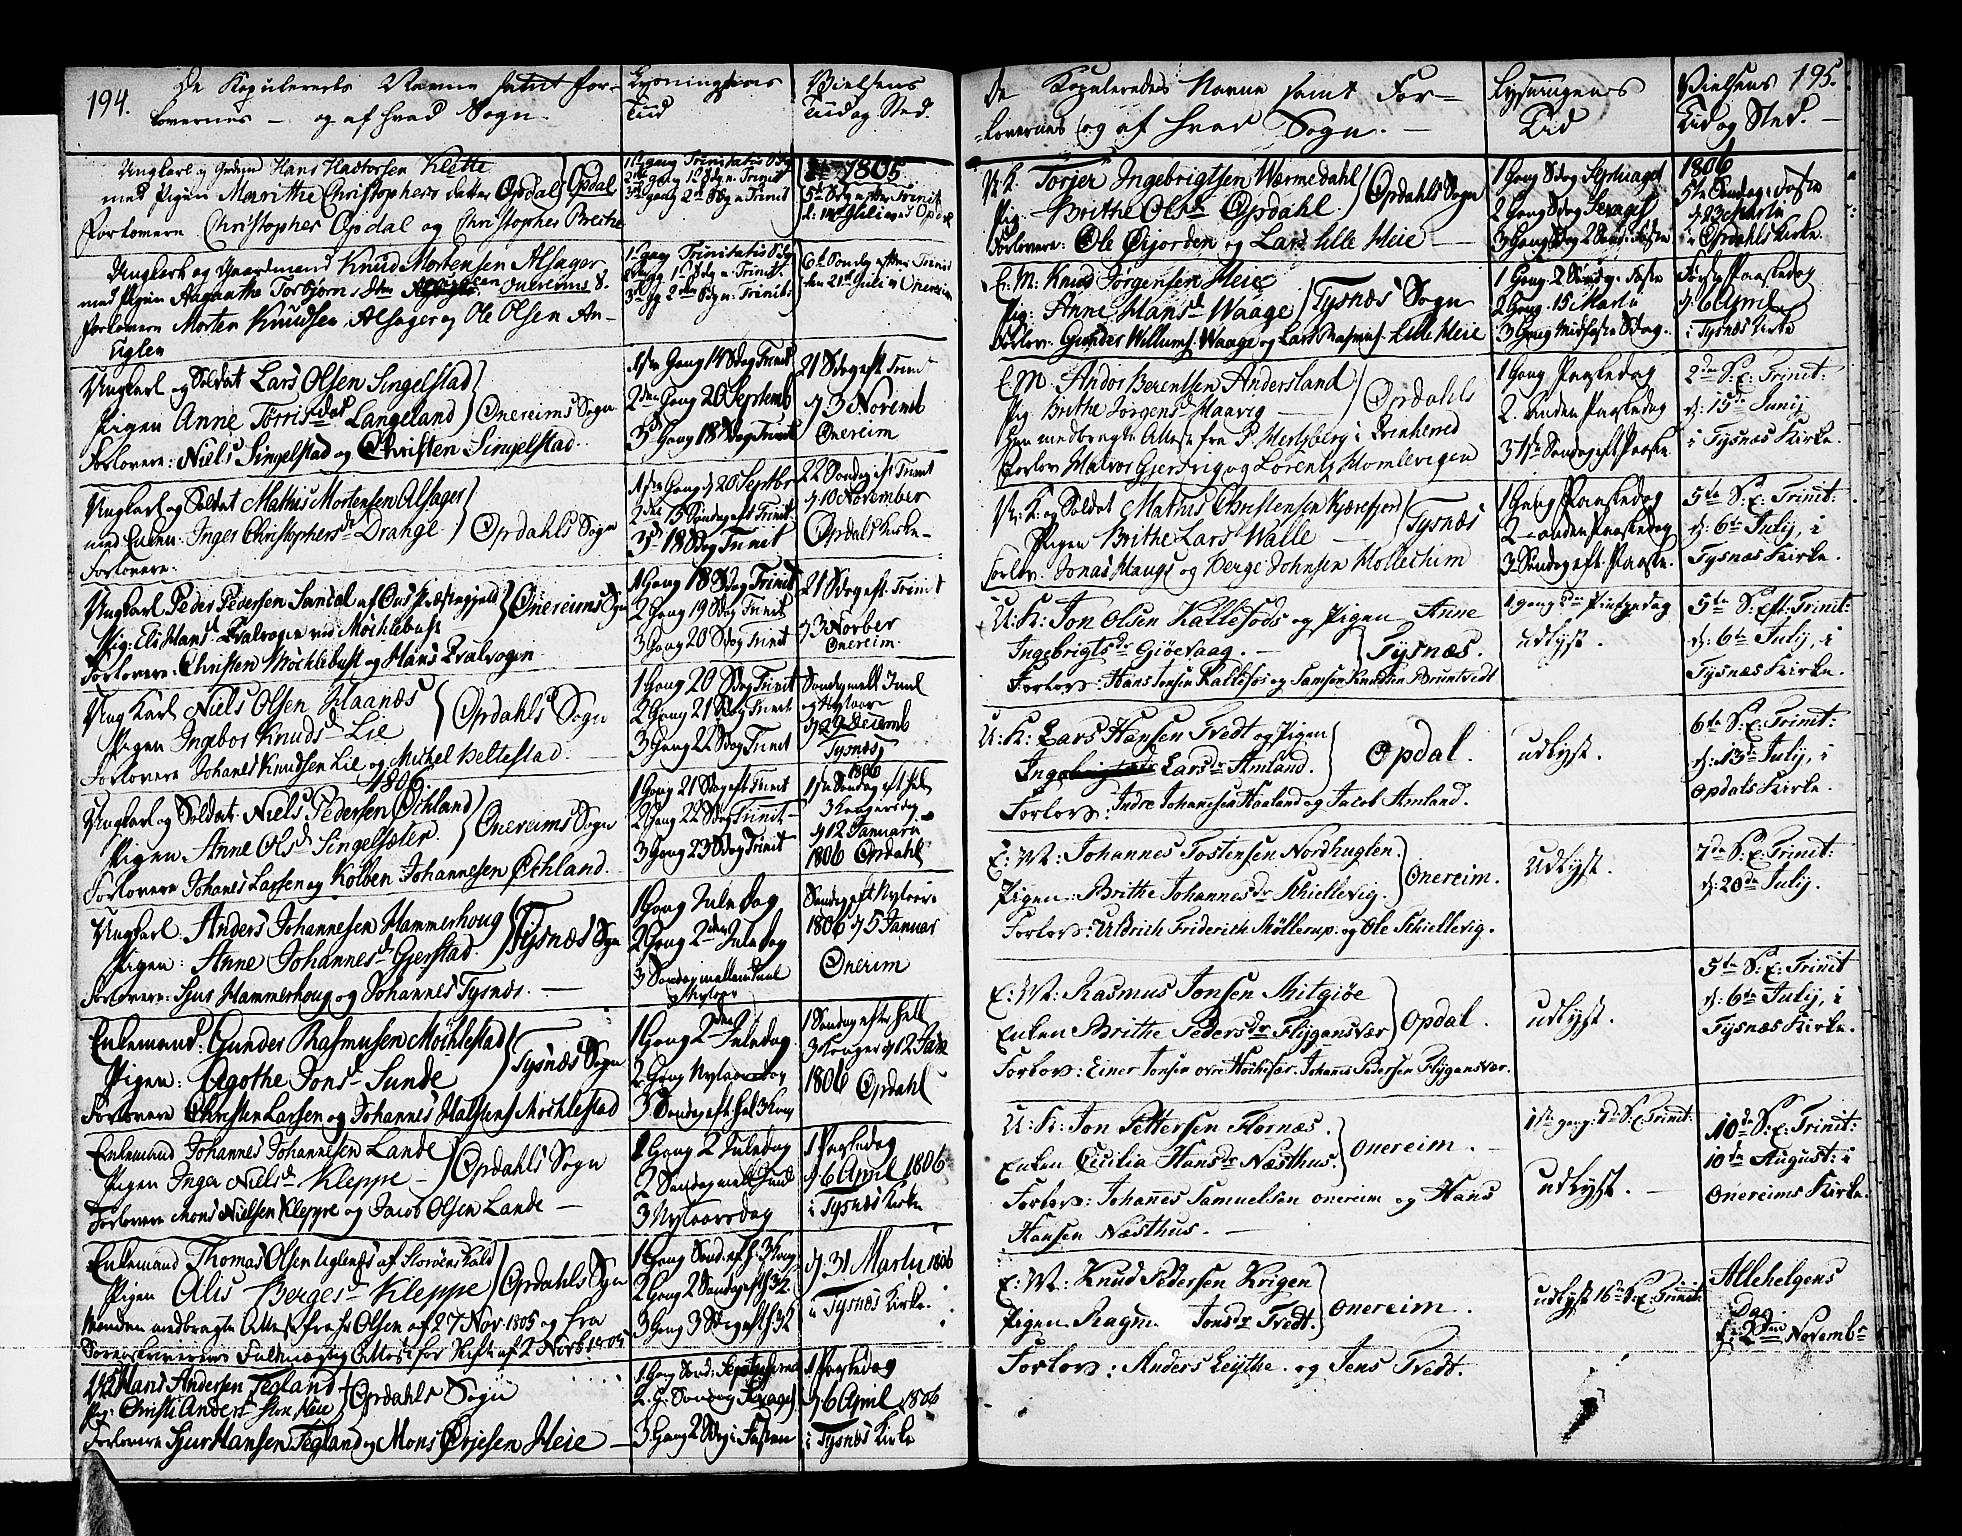 194.
De Kopuleredes Navne samt For-
lovernes - og af hvad Sogn.
Lysningens
Tiid
Vielsens
Tiid og Sted.
Ungkarl og Hans Klette
med Pigen Marithe Christophers datter Opdal } Opdal
Forlovere Christopher Opdal og Christopher
1ste gang Trinitatis Sdg
2den gang 1ste Sdg e. Trinit
3die gang 2den Sdg e. Trinit
1805
5te Sdg efter Trinit
Ungkarl og Gaardmand Knud Mortensen Alsager
med Pigen Aagaathe Torbjørns dtr Onereims S.
Forlovere Morten Knudsen Alsager og Ole Olsen An-
Uglen
1ste gang Trinitatis Sdg
2den gang 1ste Sdg e. Trinit.
3die gg 2den Sdg e. Trinit.
6te Sondag efter Trinit
den 21de Juli i Onereim
Ungkarl og Soldat Lars Olsen Singelstad
Pigen Anne Tørrisdat Langeland } Onereims Sogn
Forlovere: Niels Singelstad og Christen Singelstad.
1ste Gang 14 Sdag Trinit
2den Gang 20 Septemb
3die Gang 18 Sdag Trinit
21 Sdag eft Trinit
d 3 Novemb
Onereim
Ungkarl og Soldat Mathis Mortensen Alsager
med Enken: Inger Christophersd. Drange } Opdahls Sogn
Forlovere:
1ste Gang d 20 Septbr
2den 15 Søndag eft Trinit
3die 18 Sdag Trinit
22 Søndag eft Trinit
d 10 November
Opdals Kirke -
Ungkarl Peder Pedersen af Ous Præstegjeld } Onereims Sogn
Pig: Eli Hansd. Qvalvogen ved Møchlebust
Forlovere: Christen Møchlebust og Hans Qvalvogen
1 Gang 18 Sdag Trinit
2 Gang 19 Sdag Trinit
3 Gang 20 Sdag Trinit
21 Sdag eft. Trinit
d 3 Novber
Onereim.
Ung Karl Niels Olsen Haanæs
Pigen Ingebor Knudsd Lie } Opdahls Sogn
Forlovere Johanes Knudsen Lie og Michel Beltestad.
1 Gang 20 Sdag Trinit
2 Gang 21 Sdag Trinit
3 Gang 22 Sdag Trinit
Søndag mell. Juul
og Nytaar
d 29 Decemb
Tysnæs
1806
Ungkarl og Soldat Niels Pedersen Økland
Pigen Anne Olsd Singelsøter. } Onereims Sogn
Forlovere Johanes Larsen og Kolben Johannesen Økland.
1 Gang 21 Sdag eft Trinit
2 Gang 22 Sdag Trinit -
3 Gang 23 Sdag Trinit
1806
1ste Søndag eft hel
3 Kongersdag
d 12 Januari
1806 Opdahl
Ungkarl: Anders Johannesen Hammerhoug
Pigen: Anne Johannesd Gjerstad. } Tysnæs Sogn
Forlovere: Sjur Hammerhoug og Johannes Tysnæs. -
1 Gang Juledag
2 Gang 2den Juledag
3 Søndag mellem Juul
og Nytaar
Søndag eft Nytaar
1806 d 5 Januar
Onerim
Enkemand: Gunder Rasmusen Møchlestad
Pigen: Agothe Jonsd Sunde } Tysnæs Sogn
Forlovere Christen Larsen og Johannes Halsens Møchlestad
1 Gang 2den Juledag
2 Gang Nytaarsdag
3 Søndag eft hel 3 Kong
1 Søndag efter hell
3 Konger d 12 Jan
1806 Opdahl
Enkemand Johannes Johannesen Lande
Pigen Inga Nielsd Kleppe - } Opdahls Sogn
Forlovere Mons Nielsen Kleppe og Jacob Olsen Lande -
1 Gang 2 Juledag
2 Søndag mell Juul
3 Nytaarsdag
1 Paaskedag
d 6 April 1806
i Tysnæs Kirke
Enkemand Thomas Olsen Uglenæs af Storøens Kald
Pigen Alis Bergesd Kleppe } Opdahls Sogn
Manden medbragte Attest fra Hr Olsen af 27 Nov 1805 og fra
Sorenskriverens Fuldmægtig Attest for Skifte af 2 Novb 1805
1 Gang Sønd. eft h. 3 Kong
2 Gang 2 Søndag eft h 3 K
3 Gang 3 Sdag eft h 3 K
d 31 Martii 1806
i Tysnæs Kirke.
UK Hans Andersen Tegland
Pig: Christi Andersd store Heie } Opdahls Sogn
Forlovere Sjur Hansen Tegland og Mons Ørjesen Heie -
1 Gang Sønd. Septuages
2. G. Søndag Sexages
3 Gang 2 Sdag i Fasten
1 Paaskedag
d 6 April 1806
i Tysnæs Kirke
De Kopuleredes Navne samt For-
-lovernes og af hvad Sogn. -
Lysningens
Tid
Vielsens 195.
Tid og Sted. -
U.K. Torjer Ingebrigtsen Warmedahl
Pig: Brithe Olsd Opdahl. } Opdahls Sogn
Forlovere: Ole Øijorden og Lars lille Heie -
1 Gang Sdag Septuaget
2 Gang Sdag Sexages
3 Gang Sdag 2 Sønd. i Faste
1806
5te Søndag i Faste
d 23 Martii
i Opdahls Kirke.
E.M. Knud Jørgensen Heie
Pig: Anne Hansd Waage } Tysnæs Sogn
Forlov: Gunder Willums. Waage og Lars Rasmus. Lille Heie
1 Gang 2 Søndag i Faste
2 Gang 15 Martii
3 Gang Midfaste Sdag.
Første Paaskedag
d 6 April
i Tysnæs Kirke
E.M. Andor Berentsen Andersland
Pig. Brithe Jørgensd Haavig - } Opdahls
Han medbragte Attest fra P. Hertzberg i Qvinherred
Forlov Halvor Gjersvig og Lorentz Homlevigen
1 Gang Paaskedag
2. Anden Paaskedag
3 1ste Søndag eft Paaske
2den S: E: Trinit:
d: 15de Junij
i Tysnæs Kirke.
U.K. og Soldat Mathis Christensen Kjærefjord
Pigen Brithe Larsd Walle - } Tysnæs
Forlov. Jonas Hauge og Berge Johnsen Holleheim
1 Gang Paaskedag
2 - anden Paaskedag
3 Søndag eft. Paaske.
5te S: E: Trinit:
d: 6te Julij, i
Tysnæs Kirke.
U: K: Jon Olsen Kallefods og Pigen Anne
Ingebrigtsdr Giøevaag. - } Tysnæs.
Forlov: Hans Jonsen Kallefos og Samson Knudsen Bruntvedt
1 gang 2den Pintzedag
udlyst.
5te S: Eft: Trinit:
d: 6te Julij, i
Tysnæs Kirke.
U: K: Lars Hansen Tvedt og Pigen
Larsdr Amland. } Opdal.
Forlov: Indre Johannesen Haaland og Jacob Amland.
udlyst.
6te S: E: Trinit:
d: 13de Julij, i
Opdals Kirke.
E: M: Johannes Tostensen Nordhuglen.
Pigen: Brithe Johannesdr Skiellevig. } Onereim.
Forlov: Uldrich Friderich Møllerup. og Ole Skiellevig.
Udlyst.
7de S: E: Trinit:
d: 20de Julij.
E: M: Rasmus Jonsen Mitgiøe
Enken Brithe Pedersdr Flygansvær } Opdal.
Forlov: Einer Jonsen Johannes Pedersen Flygansvær.
udlyst.
5te S: E: Trinit
d: 6te Julij, i
Tysnæs Kirke.
U: K: Jon Pettersen Flornæs.
Enken Cicilia Hansdr Næsthus. } Onereim.
Forlov: Johannes Samuelsen Onereim og Hans
Hansen Næsthus. -
1ste gang: 7de S: E: Trinit:
udlyst. -
10de S: E: Trinit:
10de August: i
Onereims Kirke.
E: M: Knud Pedersen Krigen
Pigen: Ragn Jonsdr Tvedt. } Onereim.
Forlov: Anders Leythe. og Jens Tvedt.
udlyst 16de S: E: Trinit:
Allehelgens
Dag
d: 2den Novembr